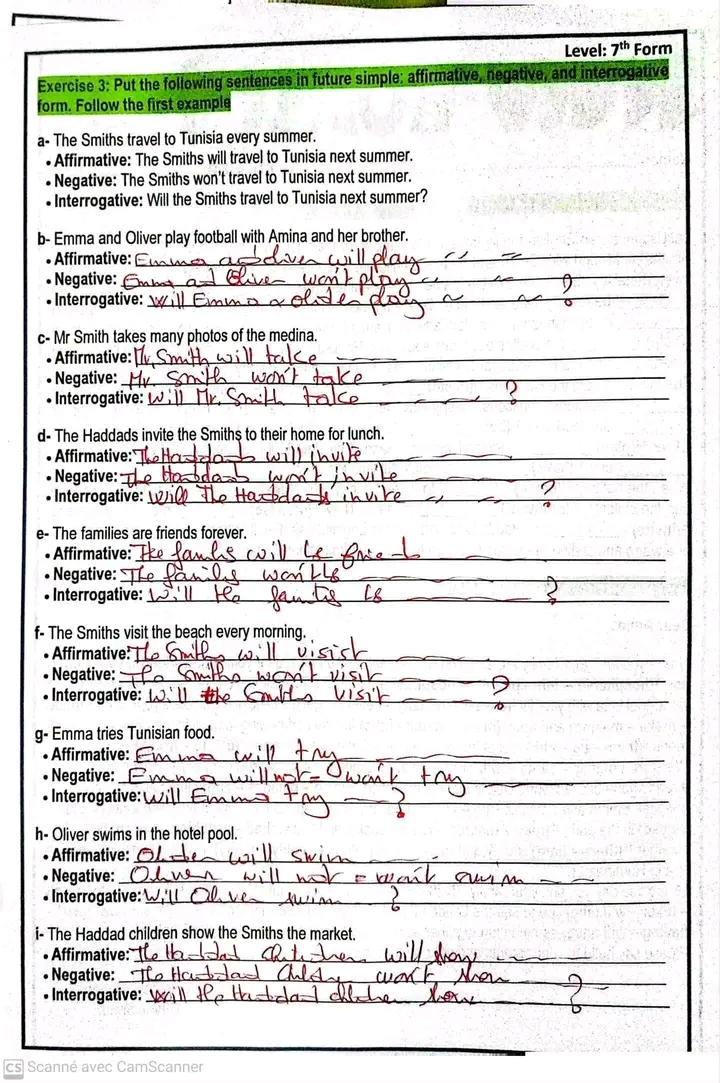 Level: 7th Form
Exercise 3: Put the following sentences in future simple: affirmative, negative, and interrogative
form. Follow the first example
a- The Smiths travel to Tunisia every summer.
• Affirmative: The Smiths will travel to Tunisia next summer.
• Negative: The Smiths won't travel to Tunisia next summer.
• Interrogative: Will the Smiths travel to Tunisia next summer?
b- Emma and Oliver play football with Amina and her brother.
• Affirmative: Emma and oliver will play
• Negative: Emma and Oliver won't play
• Interrogative: Will Emma & oliver play ?
c- Mr Smith takes many photos of the medina.
• Affirmative: Mr. Smith will take
• Negative: Mr. Smith won't take
• Interrogative: Will Mr. Smith take ?
d- The Haddads invite the Smiths to their home for lunch.
• Affirmative: The Haddads will invite
• Negative: The Haddads won't invite
• Interrogative: Will The Haddads invite ?
e- The families are friends forever.
• Affirmative: The will be
• Negative: The won't be
• Interrogative: Will the be ?
f- The Smiths visit the beach every morning.
• Affirmative: The Smiths will visist
• Negative: The Smiths won't visit
• Interrogative: Will the Smiths visit ?
g- Emma tries Tunisian food.
• Affirmative: Emma will try
• Negative: Emma will not = won't try
• Interrogative: Will Emma try ?
h- Oliver swims in the hotel pool.
• Affirmative: Oliver will swim
• Negative: Oliver will not = won't swim
• Interrogative: Will Oliver swim ?
i- The Haddad children show the Smiths the market.
• Affirmative: The Haddad will show
• Negative: The Haddad won't show
• Interrogative: Will the Haddad children show ?
CS Scanné avec CamScanner